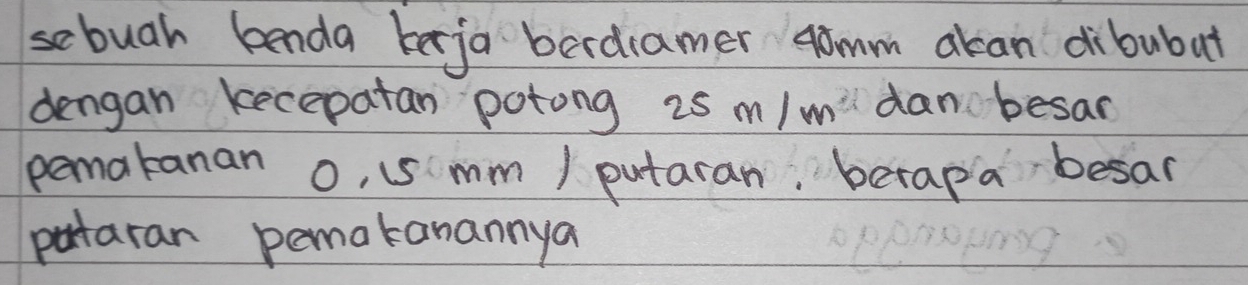 sebuah benda kerja berdiamer 40mm akan dibubut
dengan kecepatan potong 25 m/m dan besar
pemakanan 0,15 mm / putaran. berapa besar
putaran pemakanannya